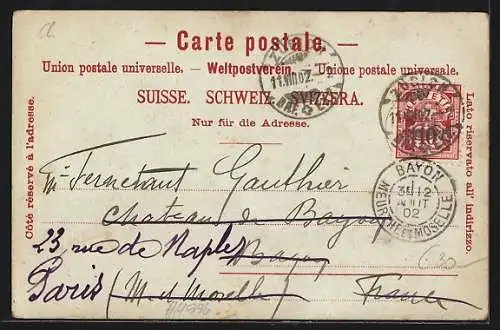 a.
— Carte postale. —
Union postale universelle. — Weltpostverein. — Unione postale universale.
SUISSE. SCHWEIZ. SVIZZERA.
Nur für die Adresse.
Côté réservé à l'adresse.
Lato riservato all' indirizzo.
ZÜRICH
11.VIII.02.
ZÜRICH
11.VIII.02.
HELVETIA
10
BAYON
3E 12
AOUT
02
MEURTHE ET MOSELLE
Mr Fernetant Gauthier
Chateau de Bayon
23, rue de Naples
Bayon
Paris (M. et Moselle)
France